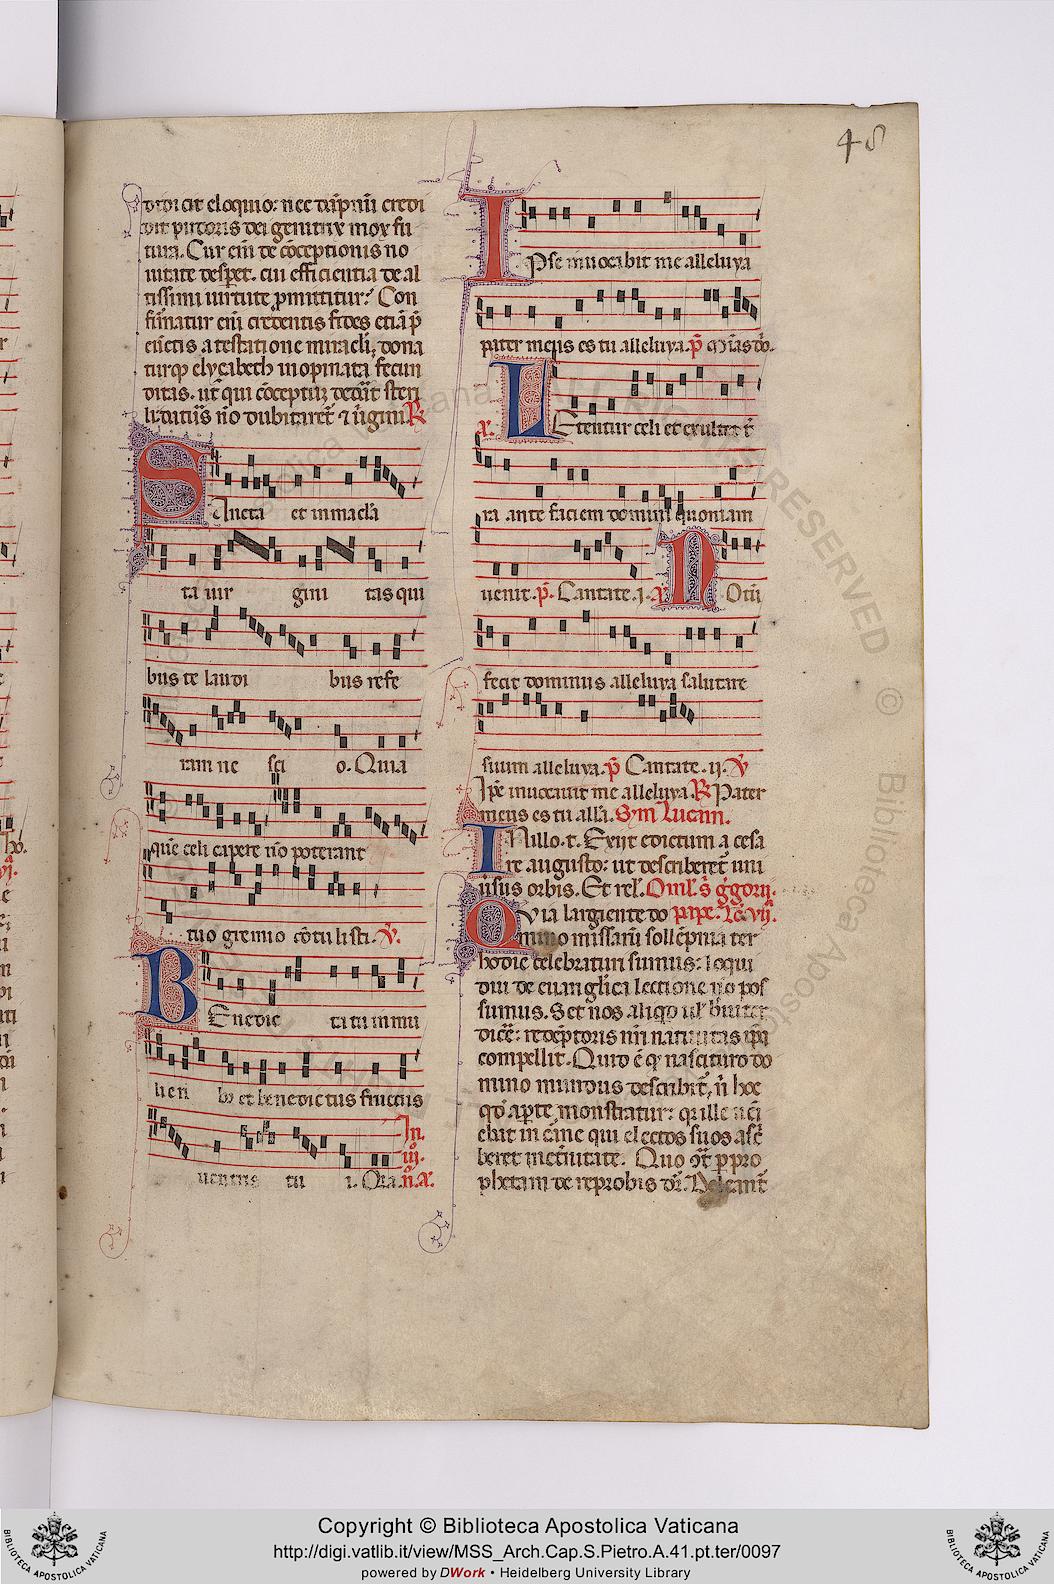 48
didicit eloquio: nec tam̄ nūi credi
dit pudoris dei genitrix mox fu
tura. Cur eni᷒ de cōceptionis no
uitate desperet. cui efficientia de al
tissimi uirtute promittitur? Con
firmatur eni᷒ credentis fides etiā p̄
euntis atestatione miraculi: dona
turq; elysabeth inopinata fecun
ditas. ut qui cōceptū dederat steri
li: daturus nō dubitaret̄ ⁊ uirgini. R
SAncta et inmacula
ta uir gini tas qui
bus te laudi bus refe
ram ne sci o. Quia
que celi capere nō poterant
tuo gremio cōtulisti. V.
BEnedic ta tu in mu
lieri bus et benedictus fructus
uentris tu i. Ora. In
iii.
n. a.
IPse inuocabit me alleluya
pater meus es tu alleluya. p̄
a. LEtentur celi et exultet t̄
ra ante faciem domini quoniam
uenit. p̄. Cantate. i. a. NOtū
fecit dominus alleluya salutare
suum alleluya. p̄ Cantate. ii. V
Ipse inuocauit me alleluya. R Pater
meus es tu alla. Scdm Lucam.
IN illo. t. Exiit edictum a cesa
re augusto: ut describeret̄ uni
uersus orbis. Et rel. Oml. s̄ gregorii.
QVia largiente do pape. Lc̄. vii.
mino missarū sollēpnia ter
hodie celebraturi sumus: loqui
diu de euangelica lectione nō pos
sumus. Set nos aliquid uel breuiter
dicere: redēptoris nr̄i natiuitas ipsa
compellit. Quid ē q̄ nascituro do
mino mundus describit̄, n̄ hoc
qd̄ aperte monstratur: q̄ ille ueni
ebat in carne qui electos suos ascri
beret in eternitate. Quo contra p̄ pro
phetam de reprobis dr̄. Deleant̄
Copyright © Biblioteca Apostolica Vaticana
http://digi.vatlib.it/view/MSS_Arch.Cap.S.Pietro.A.41.pt.ter/0097
powered by DWork • Heidelberg University Library